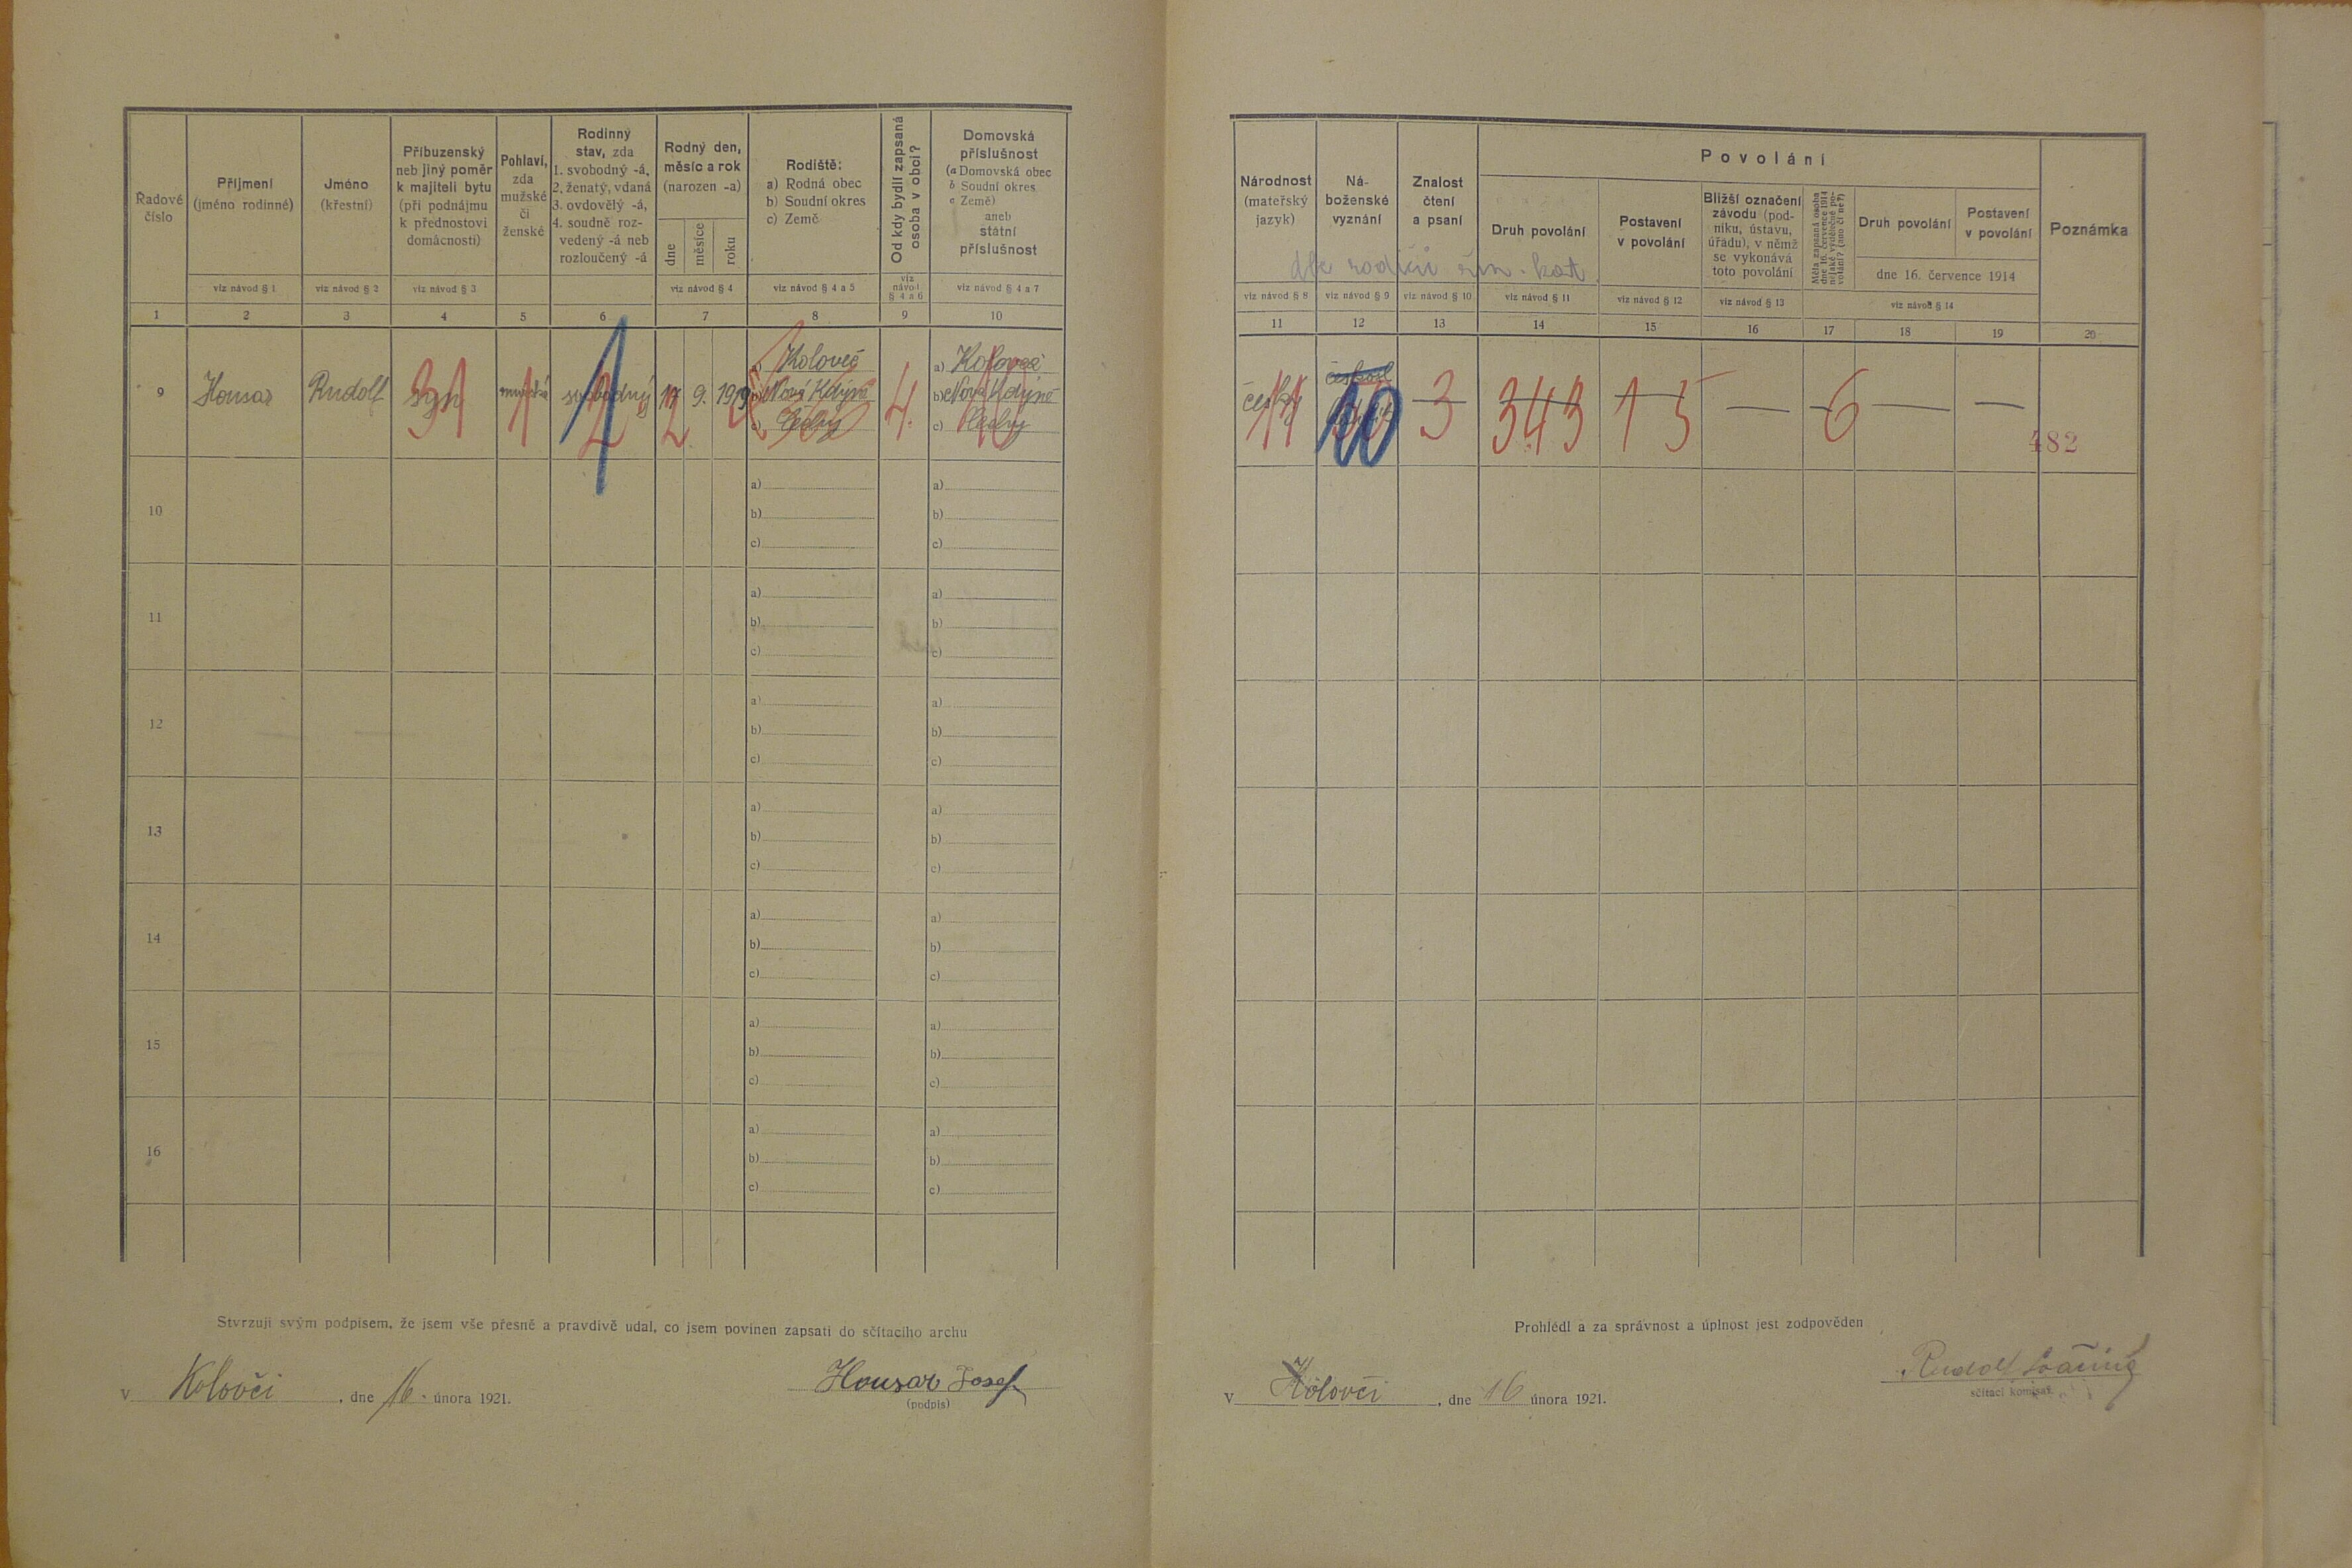 Řadové
číslo
Příjmení
(jméno rodinné)
Jméno
(křestní)
Příbuzenský
neb jiný poměr
k majiteli bytu
(při podnájmu
k přednostovi
domácnosti)
Pohlaví,
zda
mužské
či
ženské
Rodinný
stav, zda
1. svobodný -á,
2. ženatý, vdaná
3. ovdovělý -á,
4. soudně roz-
vedený -á neb
rozloučený -á
Rodný den,
měsíc a rok
(narozen -a)
dne
měsíce
roku
Rodiště:
a) Rodná obec
b) Soudní okres
c) Země
Od kdy bydlí zapsaná
osoba v obci?
Domovská
příslušnost
(a Domovská obec
b Soudní okres
c Země)
aneb
státní
příslušnost
viz návod § 1
viz návod § 2
viz návod § 3
viz návod § 4
viz návod § 4 a 5
viz
návod
§ 4 a 6
viz návod § 4 a 7
1 2 3 4 5 6 7 8 9 10
9 Housar Rudolf syn mužské svobodný 17 9. 1919
31 1 2 1 2 4. 10
a) Koloveč
b) Nová Kdýně
c) Čechy
a) Koloveč
b) Nová Kdýně
c) Čechy
10
a)
b)
c)
a)
b)
c)
11
a)
b)
c)
a)
b)
c)
12
a)
b)
c)
a)
b)
c)
13
a)
b)
c)
a)
b)
c)
14
a)
b)
c)
a)
b)
c)
15
a)
b)
c)
a)
b)
c)
16
a)
b)
c)
a)
b)
c)
Stvrzuji svým podpisem, že jsem vše přesně a pravdivě udal, co jsem povinen zapsati do sčítacího archu
v Kolovči, dne 16. února 1921.
Housar Josef
(podpis)
Národnost
(mateřský
jazyk)
Ná-
boženské
vyznání
Znalost
čtení
a psaní
Povolání
Druh povolání
Postavení
v povolání
Bližší označení
závodu (pod-
niku, ústavu,
úřadu), v němž
se vykonává
toto povolání
Měla zapsaná osoba
dne 16. července 1914
nějaké výdělečné po-
volání? (ano či ne?)
Druh povolání
Postavení
v povolání
dne 16. července 1914
Poznámka
dle rodičů řím. kat.
viz návod § 8
viz návod § 9
viz návod § 10
viz návod § 11
viz návod § 12
viz návod § 13
viz návod § 14
11 12 13 14 15 16 17 18 19 20
český
11 10 3 343 15 — 6 — —
482
Prohlédl a za správnost a úplnost jest zodpověden
v Kolovči, dne 16 února 1921.
Rudolf
sčítací komisař.